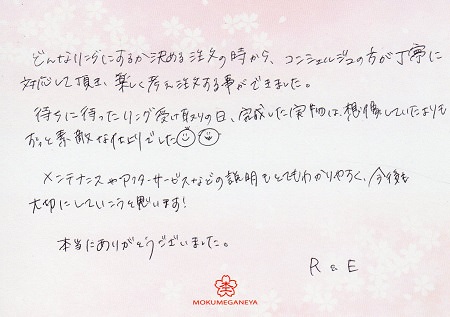 どんなリングにするか決める注文の時から、コンシェルジュの方が丁寧に
対応して頂き、楽しく考え注文する事ができました。
待ちに待ったリング受け取りの日、完成した実物は、想像していたよりも
もっと素敵な仕上りでした
メンテナンスやアフターサービスなどの説明もとてもわかりやすく、今後も
大切にしていこうと思います!
本当にありがとうございました。
R & E
MOKUMEGANEYA